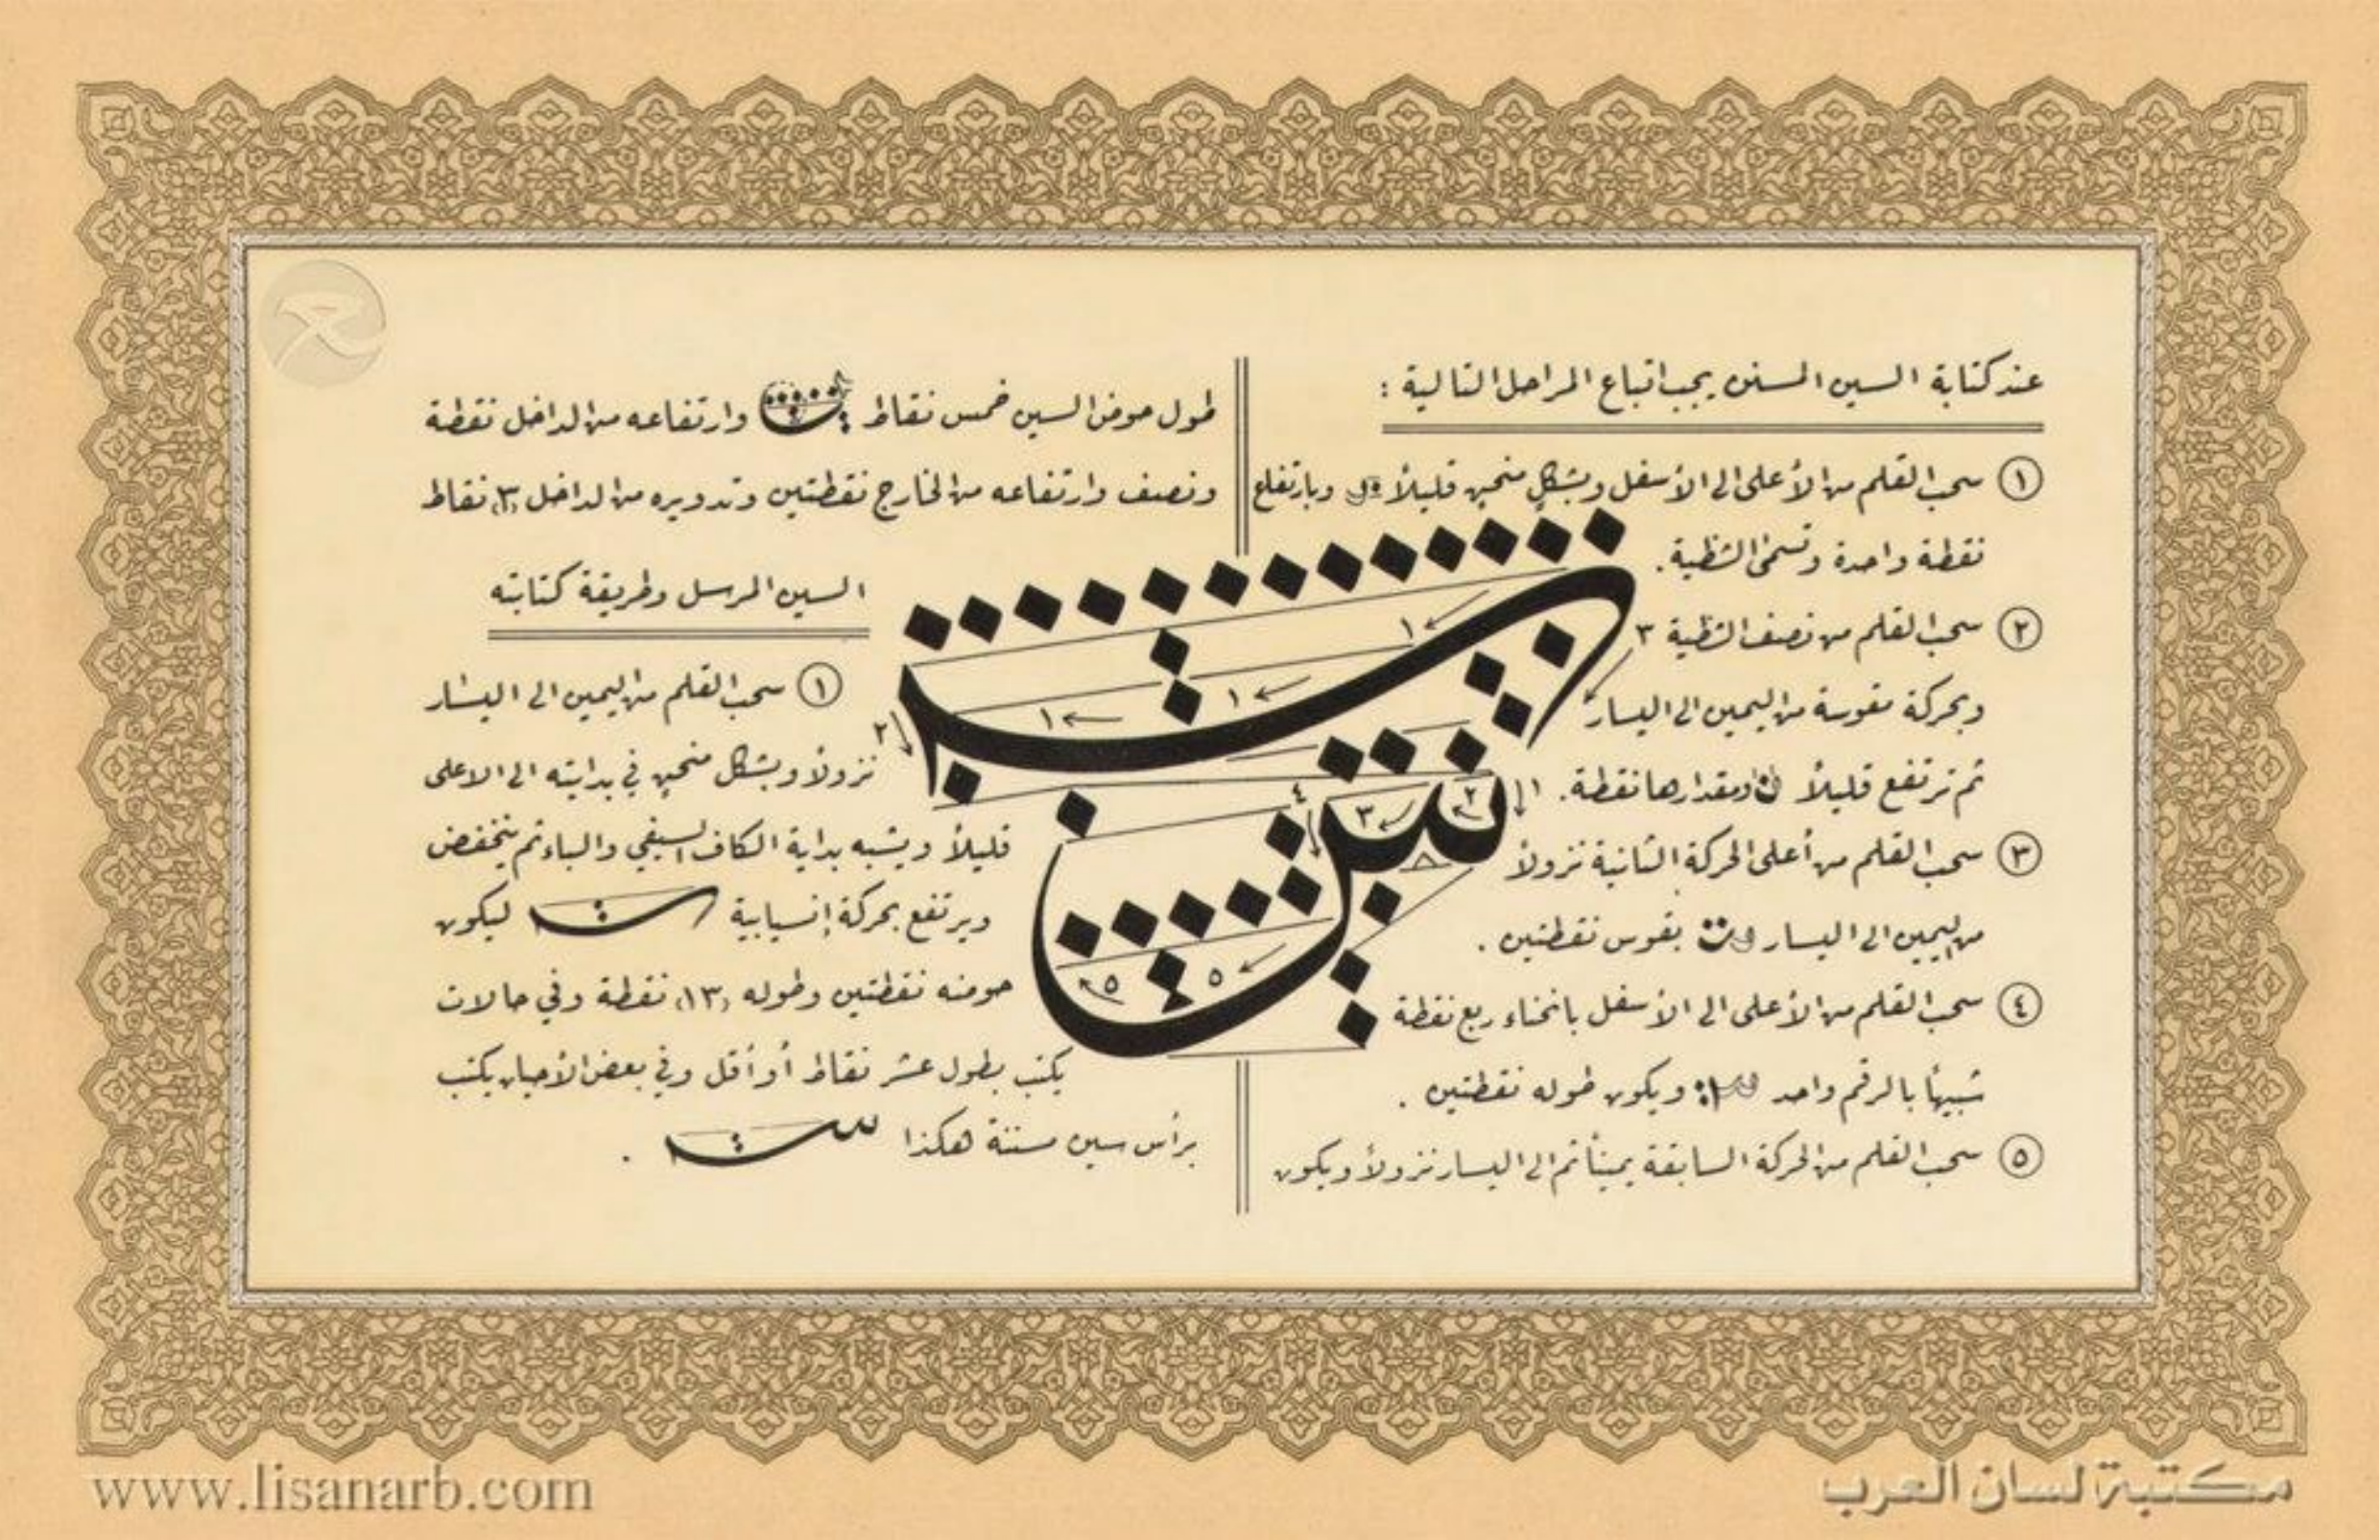 عند كتابة السين المسنن يجب اتباع المراحل التالية :
١ سحب القلم من الأعلى الى الأسفل وبشكل منحين قليلاً وبارتفاع
نقطة واحدة وتسمى الشظية .
٢ سحب القلم من نصف الشظية
وبحركة مقوسة من اليمين الى اليسار
ثم ترتفع قليلاً ومقدارها نقطة .
٣ سحب القلم من أعلى الحركة الثانية نزولاً
من اليمين الى اليسار بقوس نقطتين .
٤ سحب القلم من الأعلى الى الأسفل بانحناء ربع نقطة
شبيهاً بالرقم واحد ويكون طوله نقطتين .
٥ سحب القلم من الحركة السابقة يميناً ثم الى اليسار نزولاً ويكون
طول حوض السين خمس نقاط وارتفاعه من الداخل نقطة
ونصف وارتفاعه من الخارج نقطتين وتدويره من الداخل (٣) نقاط
السين المرسل وطريقة كتابته
١ سحب القلم من اليمين الى اليسار
نزولاً وبشكل منحين في بدايته الى الاعلى
قليلاً ويشبه بداية الكاف السيفي والباء ثم ينخفض
ويرتفع بحركة إنسيابية ليكون
حوضه نقطتين وطوله (١٣) نقطة وفي حالات
يكتب بطول عشر نقاط أو أقل وفي بعض الأحيان يكتب
برأس سين مسننة هكذا .
س
س
١
١
١
٢
٣
١
٢
٣
٤
٥
٥
www.lisanarb.com
مكتبة لسان العرب